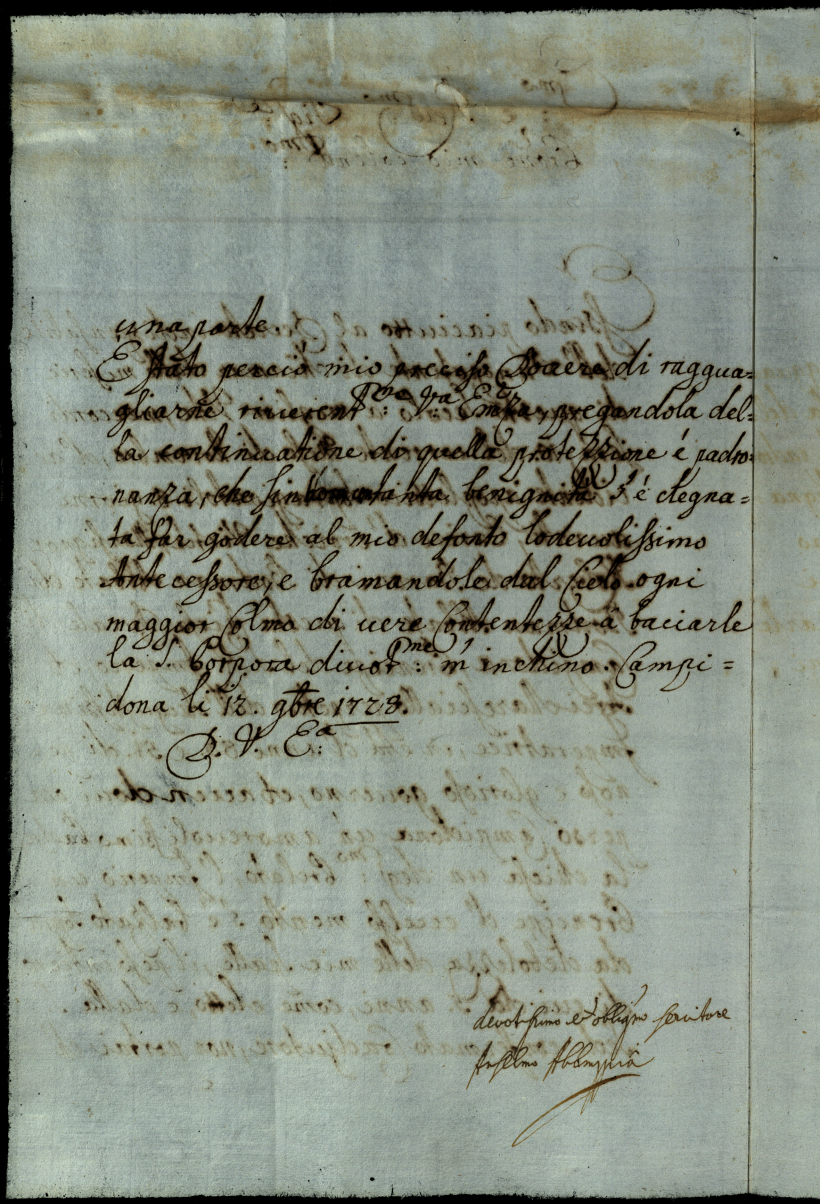 una parte.
È stato perciò mio preciso Dovere di raggua=
gliarne riverent.me: V.ra Em.za, pregandola del=
la continuatione di quella protezzione é padro=
nanza, che sin tanta benignità s' é degna=
ta far godere al mio defonto lodevolissimo
Antecessore, e bramandole dal Cielo ogni
maggior Colmo di vere Contentezze à baciarle
la S. Porpora divot.me: m' inchino. Campi=
dona li 12. 9bre 1728.
D. V. E.a:
devotissimo et obligmo servitore
Anselmo Abb